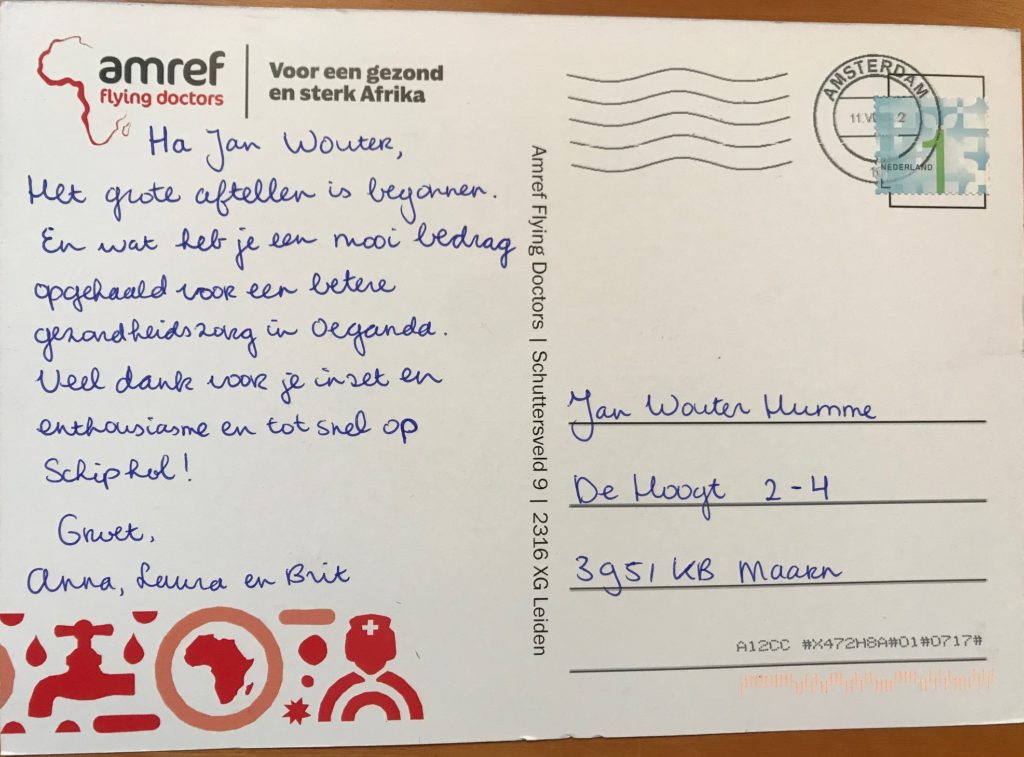 amref
flying doctors
Voor een gezond
en sterk Afrika
Ha Jan Wouter,
Het grote aftellen is begonnen.
En wat heb je een mooi bedrag
opgehaald voor een betere
gezondheidszorg in Oeganda.
Veel dank voor je inzet en
enthousiasme en tot snel op
Schiphol!
Groet,
Anna, Laura en Brit
Amref Flying Doctors | Schuttersveld 9 | 2316 XG Leiden
AMSTERDAM
NEDERLAND
1
Jan Wouter Humme
De Hoogt 2-4
3951 KB Maarn
A12CC #X472H8A#01#0717#